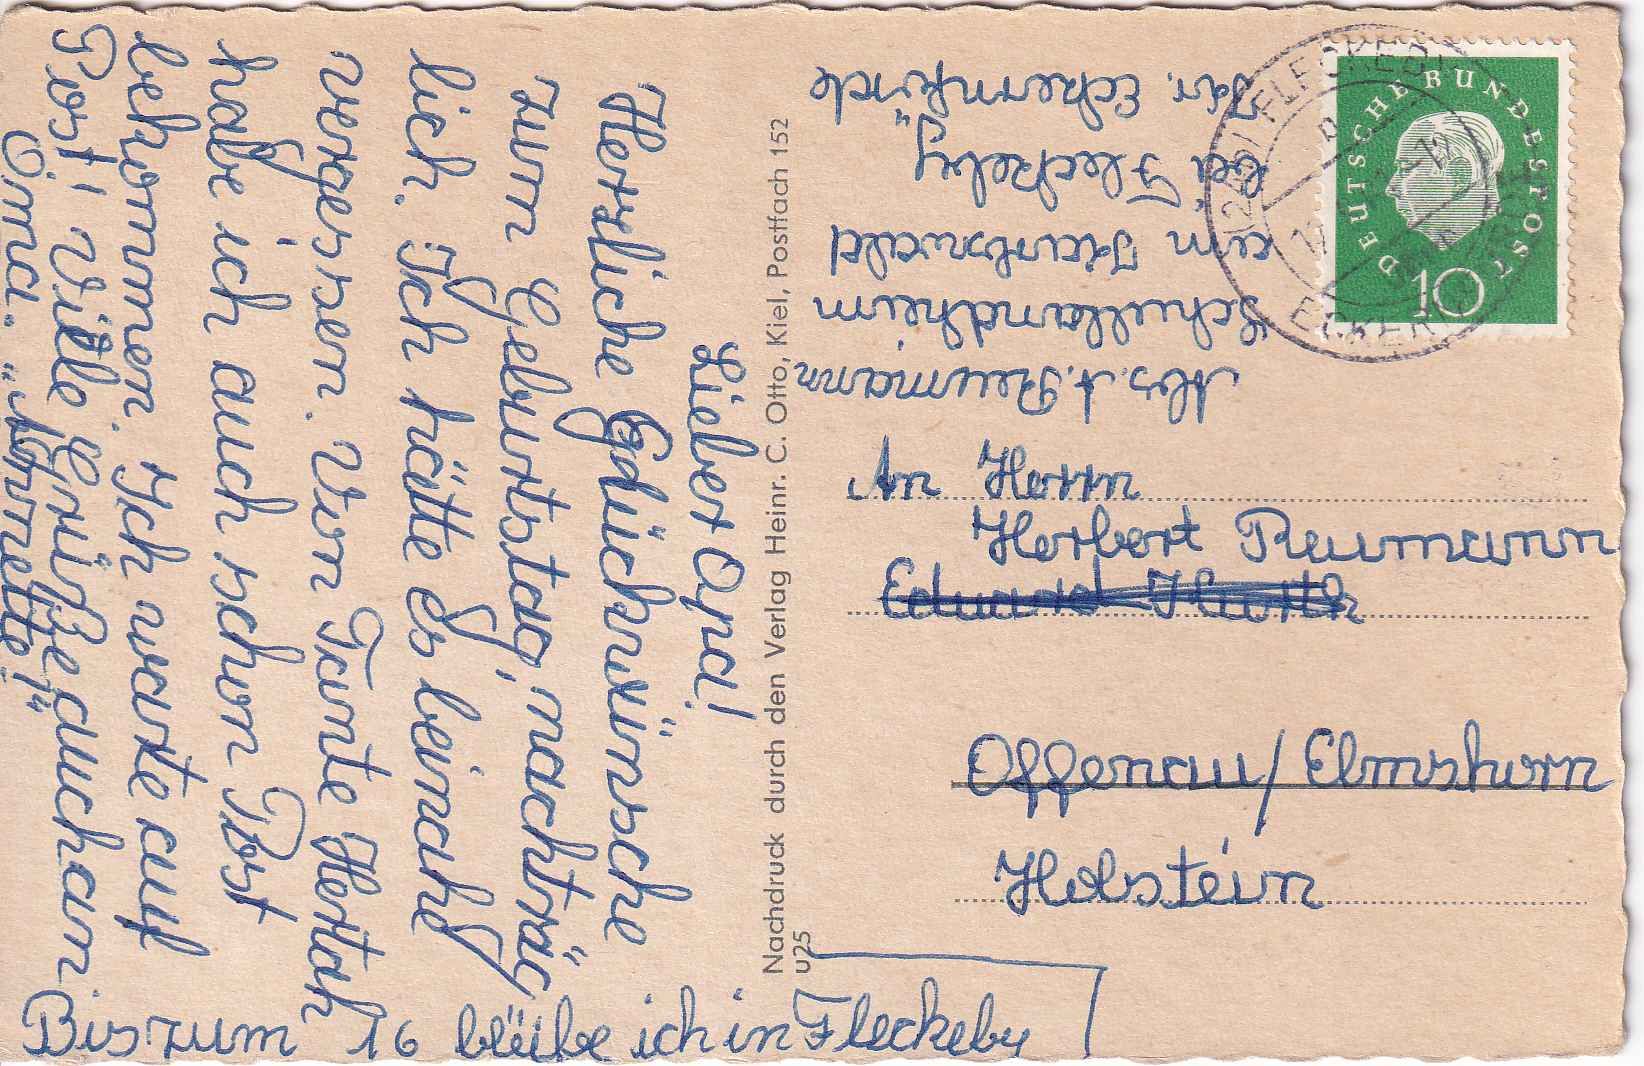 Lieber Opa!
Herzliche Glückwünsche
zum Geburtstag, nachträg
lich. Ich hätte es beinahe
vergessen. Von Tante Hertah
habe ich auch schon Post
bekommen. Ich warte auf
Post! Viele Grüße auch an
Oma. „Annette!“
Bis zum 16 bleibe ich in Fleckeby
Nachdruck durch den Verlag Heinr. C. Otto, Kiel, Postfach 152
u25
Abs. A. Reumann
Schullandheim
am
bei Fleckeby
Kr. Eckernförde
An Herrn
Herbert Reumann
Eduard
Offenau/Elmshorn
Holstein
DEUTSCHE BUNDESPOST
10
(24b) FLECKEBY
ECKERNFÖRDE